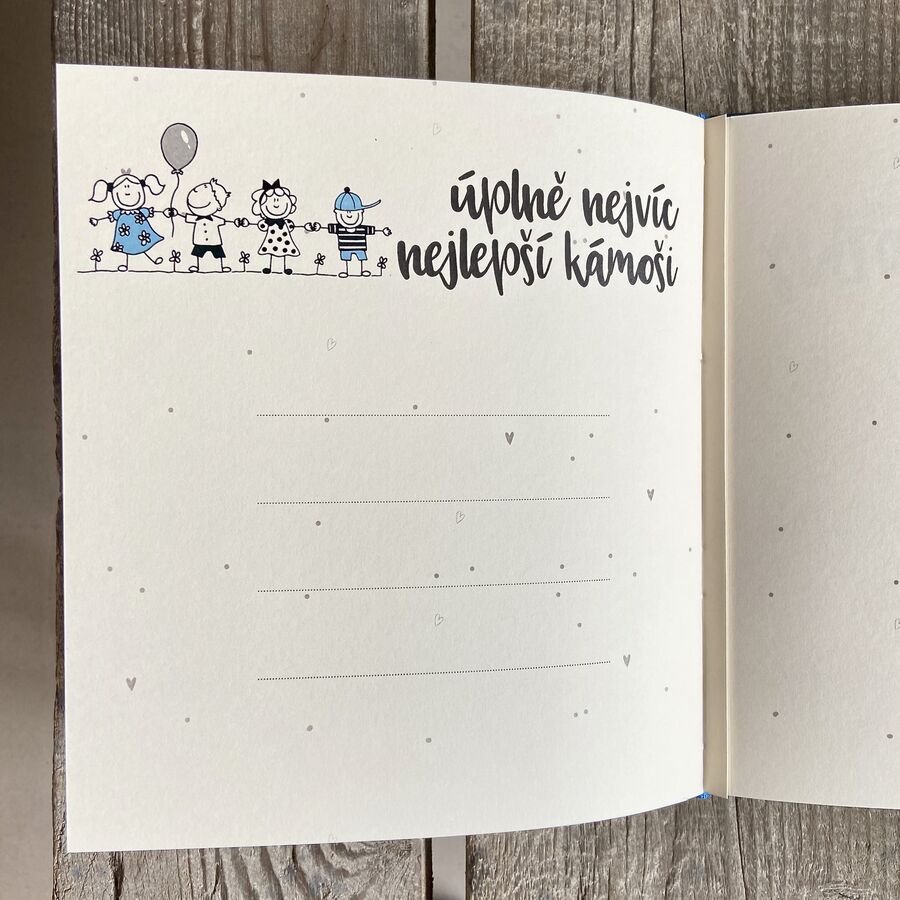 úplně nejvíc
nejlepší kámoši